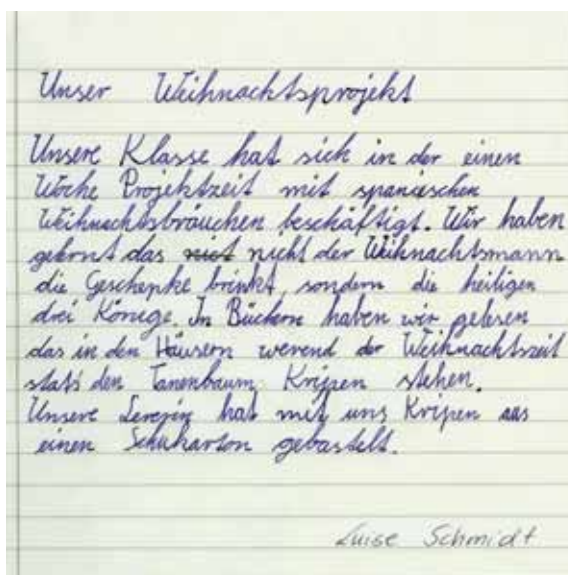 Unser Weihnachtsprojekt
Unsere Klasse hat sich in der einen
Woche Projektzeit mit spanieschen
Weihnachtsbräuchen beschäftigt. Wir haben
gelernt das nist nicht der Weihnachtsmann
die Geschenke brinkt, sondern die heiligen
drei Könege. In Büchern haben wir gelesen
das in den Häusern werend der Weihnachtszeit
stats den Tanenbaum Kripen stehen.
Unsere hat mit uns Kripen aus
einen Schukarton gebastelt.
Luise Schmidt